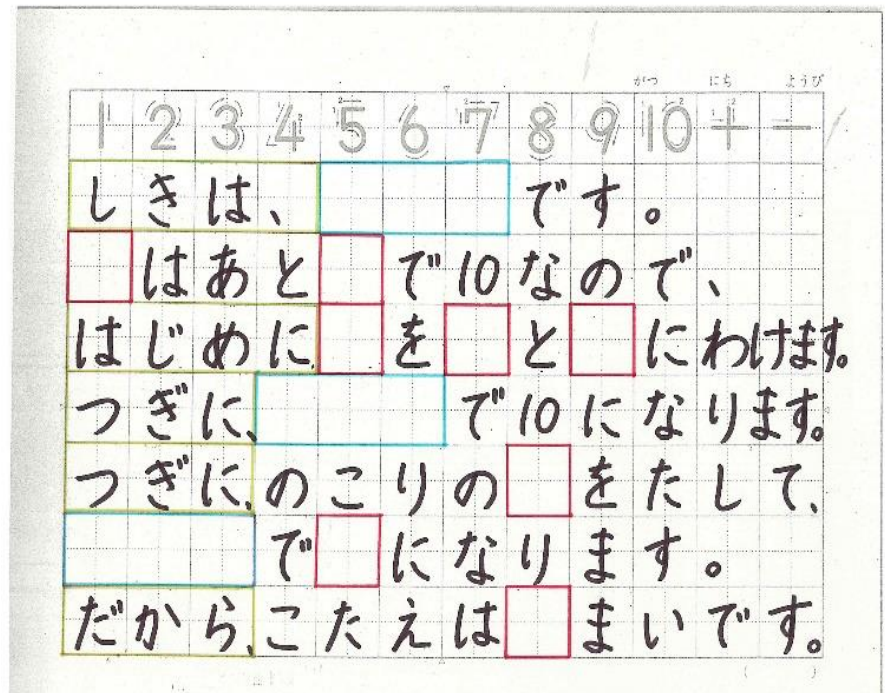 がつ にち ようび
1 2 3 4 5 6 7 8 9 10 + −
しきは、 です。
はあと で10なので、
はじめに を と にわけます。
つぎに、 で10になります。
つぎに、のこりの をたして、
で になります。
だから、こたえは まいです。